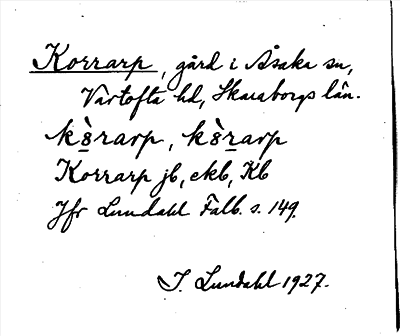 Korrarp, gård i Åsaka sn,
Vartofta hd, Skaraborgs län.
kò̱rarp, kòṟarp
Korrarp jb, ekb, Kb
Jfr Lundahl Falb. s. 149.
I. Lundahl 1927.